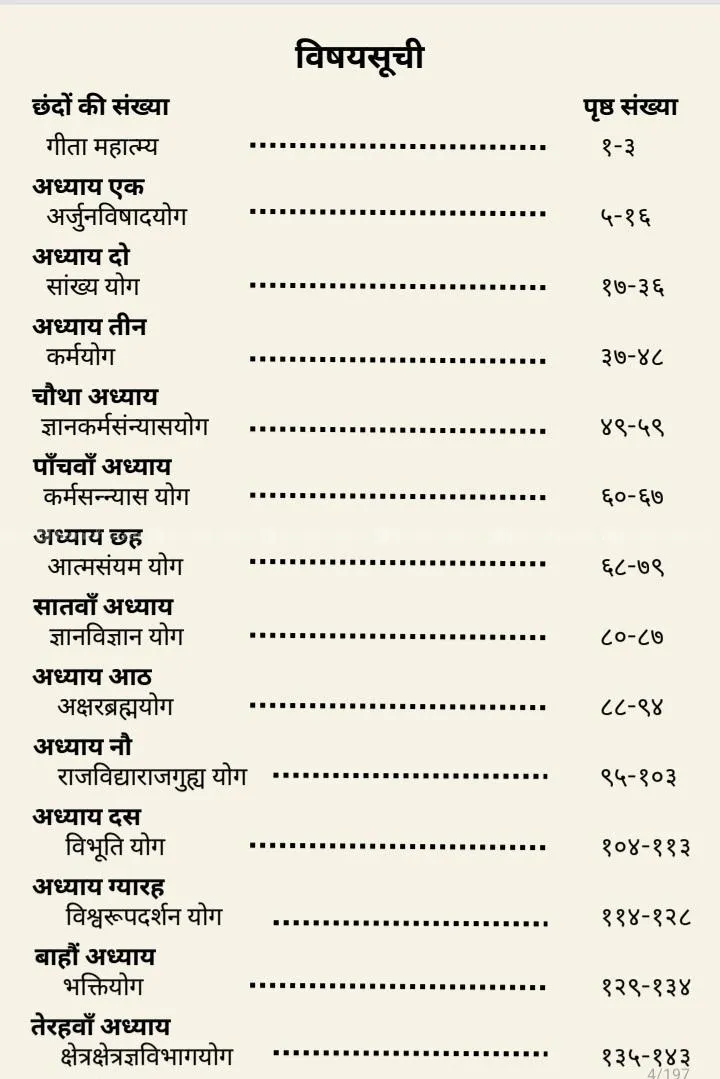 विषयसूची
छंदों की संख्या पृष्ठ संख्या
गीता महात्म्य ........................... १-३
अध्याय एक
अर्जुनविषादयोग ........................... ५-१६
अध्याय दो
सांख्य योग ........................... १७-३६
अध्याय तीन
कर्मयोग ........................... ३७-४८
चौथा अध्याय
ज्ञानकर्मसंन्यासयोग ........................... ४९-५९
पाँचवाँ अध्याय
कर्मसन्न्यास योग ........................... ६०-६७
अध्याय छह
आत्मसंयम योग ........................... ६८-७९
सातवाँ अध्याय
ज्ञानविज्ञान योग ........................... ८०-८७
अध्याय आठ
अक्षरब्रह्मयोग ........................... ८८-९४
अध्याय नौ
राजविद्याराजगुह्य योग ......................... ९५-१०३
अध्याय दस
विभूति योग ........................... १०४-११३
अध्याय ग्यारह
विश्वरूपदर्शन योग ......................... ११४-१२८
बाहौं अध्याय
भक्तियोग ........................... १२९-१३४
तेरहवाँ अध्याय
क्षेत्रक्षेत्रज्ञविभागयोग ......................... १३५-१४३
4/197